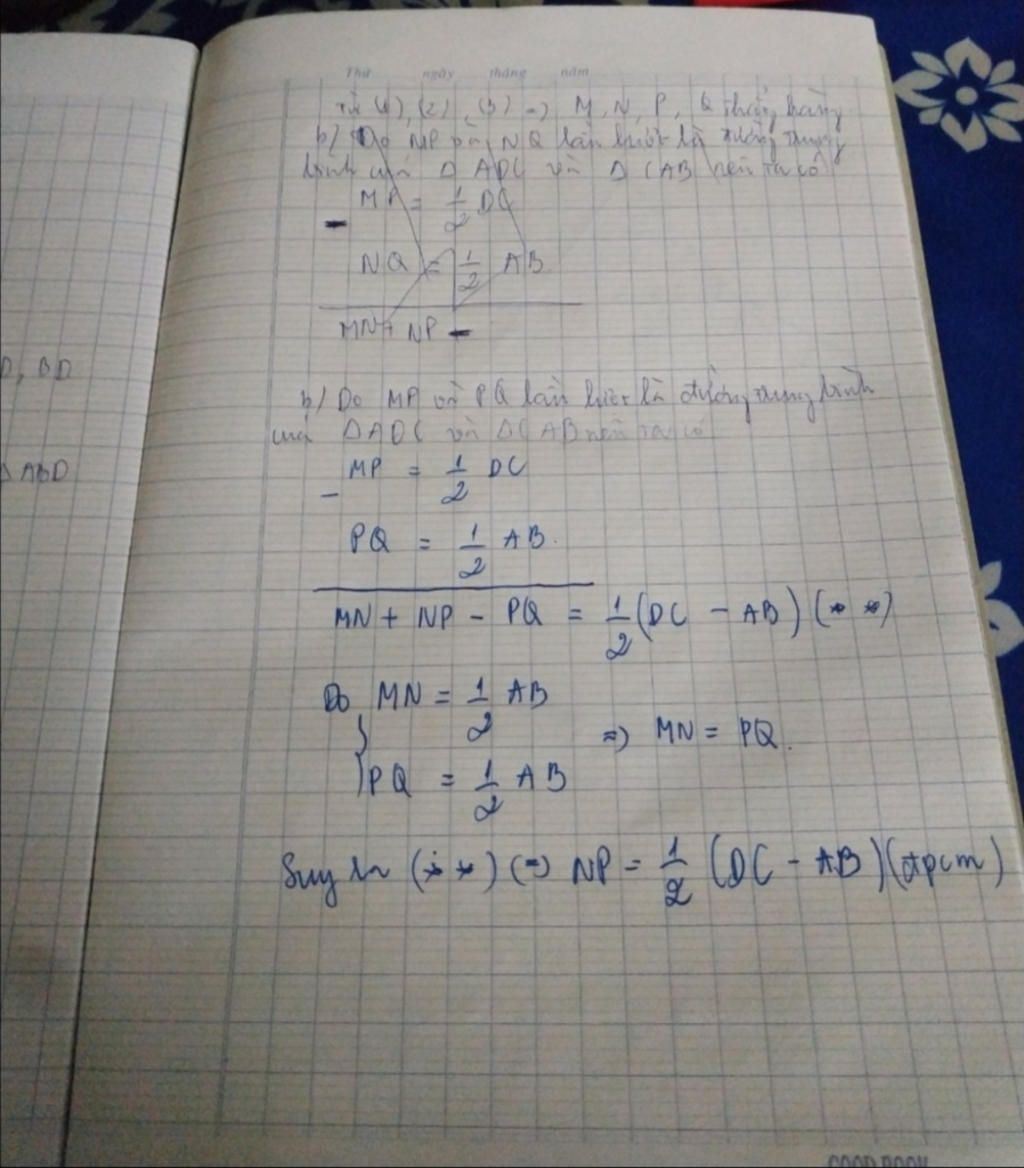 Thứ ngày tháng năm
Từ (1), (2), (3) => M, N, P, Q thẳng hàng
b/ Do MP và NQ lần lượt là đường trung
bình của Δ ADC và Δ CAB nên ta có
MP = 1/2 DC
-
NQ = 1/2 AB
MN + NP -
D, BD
b/ Do MP và PQ lần lượt là đường trung bình
của ΔADC và ΔCAB nên ta có
Δ ABD
MP = 1/2 DC
-
PQ = 1/2 AB.
MN + NP - PQ = 1/2 (DC - AB) (* *)
Do { MN = 1/2 AB
=> MN = PQ.
PQ = 1/2 AB
Suy ra (* *) (=) NP = 1/2 (DC - AB) (đpcm)